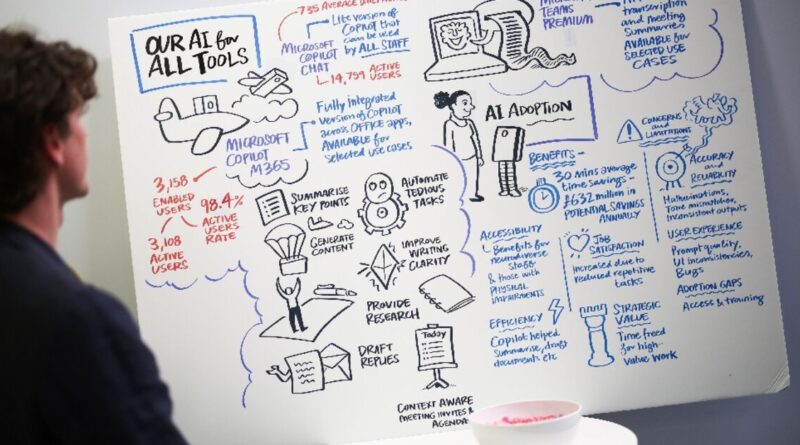 OUR AI for
ALL TOOLS
735 AVERAGE
Lite version of
COPILOT that
can be used
by ALL STAFF
MICROSOFT
COPILOT
CHAT
14,759 ACTIVE
USERS
Fully integrated
version of COPILOT
across OFFICE apps,
AVAILABLE for
selected use cases
MICROSOFT
COPILOT
M365
3,158
ENABLED
USERS
98.4%
ACTIVE
USERS
RATE
3,108
ACTIVE
USERS
SUMMARISE
KEY POINTS
AUTOMATE
TEDIOUS
TASKS
GENERATE
CONTENT
IMPROVE
WRITING
CLARITY
PROVIDE
RESEARCH
DRAFT
REPLIES
Today
CONTEXT AWARE
MEETING INVITES &
AGENDA
TEAMS
PREMIUM
transcription
and meeting
Summaries
AVAILABLE for
SELECTED USE
CASES
AI ADOPTION
BENEFITS-
30 mins average
time savings-
£632 million in
POTENTIAL SAVINGS
ANNUALLY
ACCESSIBILITY
Benefits for
neurodiverse
staff
& those with
PHYSICAL
IMPAIRMENTS
JOB
SATISFACTION
Increased due to
reduced repetitive
tasks
EFFICIENCY
Copilot helped
summarise, draft
documents etc
STRATEGIC
VALUE
Time freed
for high-
value work
CONCERNS
and
LIMITATIONS
ACCURACY
and
RELIABILITY
Hallucinations,
Tone mismatches,
Inconsistent outputs
USER EXPERIENCE
Prompt quality,
UI inconsistencies,
Bugs
ADOPTION GAPS
Access & training